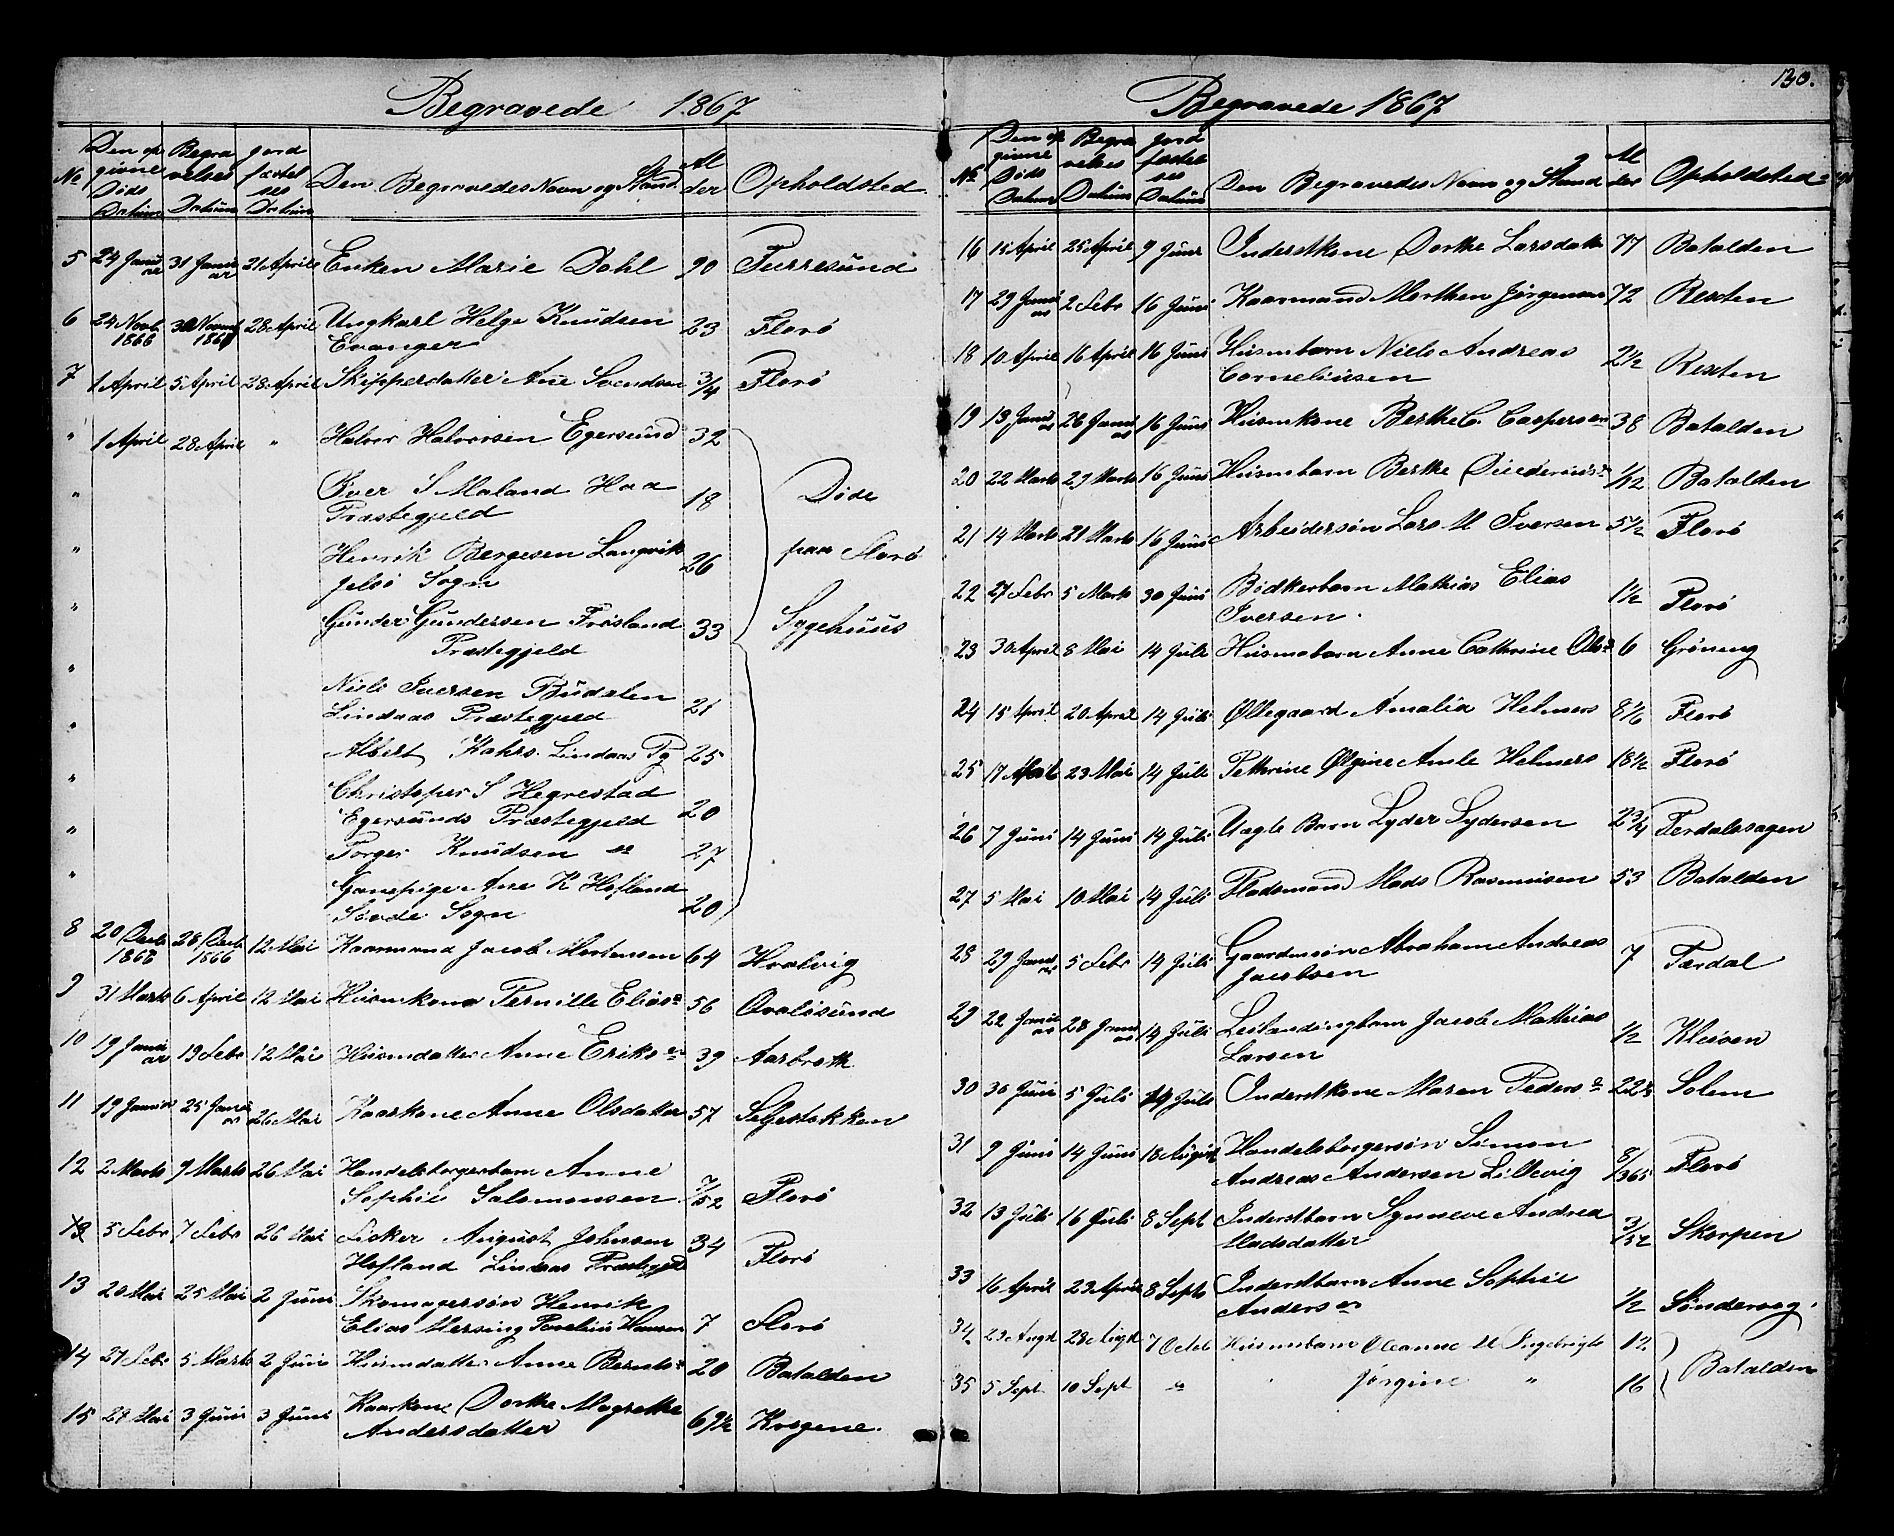 130.
Begravede 1867
№ | Den opgivne Døds Datum | Begravelses Datum | Jordfæstelses Datum | Den Begravedes Navn og Stand. | Alder | Opholdsted.
5 | 24 Januar | 31 Januar | 21 April | Enken Marie Dahl | 90 | Furresund
6 | 24 Novb. 1866 | 30 Novemb 1866 | 28 April | Ungkarl Helge Knudsen
Evanger | 23 | Florø
7 | 1 April | 5 April | 28 April | Skipperdatter Ane Svendsen | 3/4 | Florø
" | 1 April | 28 April | " | Halvor Halvorsen Egersund | 32
" | Iver S Maland Haa
Præstegjeld | 18 | Døde
" | Henrik Børgesen Langvik
Jelsø Sogn | 26 | paa Florø
" | Gunder Gundersen Frøsland
Præstegjeld | 33 | Sygehuus
" | Niels Iversen Budalen
Lindaas Præstegjeld | 21
" | Albert Kahrs Lindaas Pg | 25
" | Christopher S Hegrestad
Egersunds Præstegjeld | 20
" | Torger Knudsen " | 27
" | Ganepige Ane K Hofland
Søvde Sogn | 20
8 | 20 Decb. 1866 | 28 Decb. 1866 | 12 Mai | Kaarmand Jacob Mortensen | 64 | Hvalvig
9 | 31 Marts | 6 April | 12 Mai | Huusmkone Pernille Elias | 56 | Qvaløsund
10 | 19 Januar | 19 Febr | 12 Mai | Huusmdatter Anne Eriks | 39 | Aarbroth
11 | 19 Januar | 25 Januar | 26 Mai | Kaarkone Anne Olsdatter | 57 | Selgestokken
12 | 2 Marts | 9 Marts | 26 Mai | Handelsborgerbarn Anne
Sophie Salomonsen | 7/52 | Florø
13 | 5 Febr | 7 Febr | 26 Mai | Fisker August Johnsen
Hofland Lindaas Præstegjd | 34 | Florø
13 | 20 Mai | 25 Mai | 2 Juni | Skomagersøn Henrik
Elias Mersing Hansen | 7 | Florø
14 | 27 Febr | 5 Marts | 2 Juni | Huusmdatter Anne Bernts | 20 | Batalden
15 | 28 Mai | 3 Juni | 3 Juni | Kaarkone Dorthe Magrethe
Andersdatter | 69½ | Krogene.
Begravede 1867
№ | Den opgivne Døds Datum | Begravelses Datum | Jordfæstelses Datum | Den Begravedes Navn og Stand | Alder | Opholdsted
16 | 15 April | 25 April | 9 Juni | Inderstkone Dorthe Larsdatter | 77 | Batalden
17 | 29 Januar | 2 Febr | 16 Juni | Kaarmand Morthen Jørgensen | 72 | Rexten
18 | 10 April | 16 April | 16 Juni | Huusmbarn Niels Andreas
Corneliusen | 2½ | Rexten
19 | 19 Januar | 26 Januar | 16 Juni | Huusmkone Berthe C. Caspersen | 38 | Batalden
20 | 22 Marts | 29 Marts | 16 Juni | Huusmbarn Berthe | 1/12 | Batalden
21 | 14 Marts | 21 Marts | 16 Juni | Arbeidersøn Lars M Iversen | 5½ | Florø
22 | 27 Febr | 5 Marts | 30 Juni | Bødkerbarn Mathias Elias
Iversen. | 1½ | Florø
23 | 30 April | 8 Mai | 14 Juli | Huusmabarn Anne Cathrine Ols | 6 | Grøning
24 | 15 April | 20 April | 14 Juli | Øllegaard Amalia Helmers | 8 1/6 | Florø
25 | 17 | 23 Mai | 14 Juli | Pethrine Ølgine Amle Helmers | 18½ | Florø
26 | 7 Juni | 14 Juni | 14 Juli | Uægte Barn Lyder Lydersen | 2¾ | Ferdalesagen
27 | 5 Mai | 10 Mai | 14 Juli | Pladsmand Mads Rasmusen | 53 | Batalden
28 | 29 Januar | 5 Febr | 14 Juli | Gaardmsøn Abraham Andreas
Jacobsen | 7 | Tærdal
29 | 22 Januar | 28 Januar | 14 Juli | Leilændingbarn Jacob Mathias
Larsen | ½ | Kløsven
30 | 30 Juni | 5 Juli | 14 Juli | Inderstkone Maren Peders | 22 | Solem
31 | 9 Juni | 14 Juni | 18 August | Handelsborgersøn Simon
Andreas Andersen Lillevig | 8/365 | Florø
32 | 13 Juli | 16 Juli | 8 Sept | Inderstbarn Synneve Andrea
Madsdatter | 3/52 | Skorpen
33 | 16 April | 23 April | 8 Septb | Inderstbarn Anne Sophie
Anders | ½ | Søndervog.
34 | 23 Augst | 28 Augst | 7 Octob | Huusmbarn Oleanne M Ingebrigts | 12 | Batalden
35 | 5 Sept | 10 Sept | " | " Jørgine " | 16